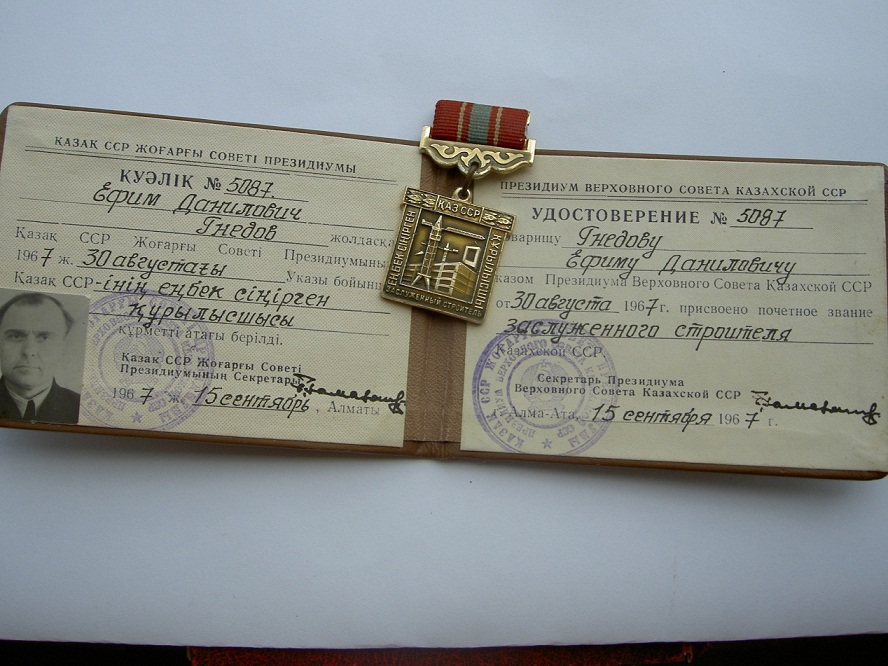 ҚАЗАҚ ССР ЖОҒАРҒЫ СОВЕТІ ПРЕЗИДИУМЫ
КУӘЛІК № 5087.
Ефим Данилович
Гнедов жолдасқа
Қазақ ССР Жоғарғы Советі Президиумының
1967 ж. 30 августағы Указы бойынша
Қазақ ССР-інің еңбек сіңірген
құрылысшысы
құрметті атағы берілді.
Қазақ ССР Жоғарғы Советі
Президиумының Секретары
1967 ж. 15 сентябрь, Алматы
ҚАЗ ССР
ЕҢБЕК СІҢІРГЕН
ҚҰРЫЛЫСШЫ
ЗАСЛУЖЕННЫЙ СТРОИТЕЛЬ
ПРЕЗИДИУМ ВЕРХОВНОГО СОВЕТА КАЗАХСКОЙ ССР
УДОСТОВЕРЕНИЕ № 5087
товарищу Гнедову
Ефиму Даниловичу
Указом Президиума Верховного Совета Казахской ССР
от 30 августа 1967 г. присвоено почетное звание
заслуженного строителя
Казахской ССР
Секретарь Президиума
Верховного Совета Казахской ССР
г. Алма-Ата, 15 сентября 1967 г.